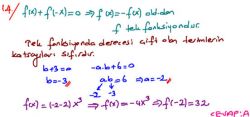 14) f(x)+f(-x)=0 ⇒ f(x)=-f(x) olduğundan
f tek fonksiyondur.
Tek fonksiyonda derecesi çift olan terimlerin
katsayıları sıfırdır.
b+3=0 -a.b+6=0
b=-3 a.b=6 ⇒ a=-2
-2 -3
f(x)=(-2-2)x³ ⇒ f(x)=-4x³ ⇒ f(-2)=32
CEVAP:A